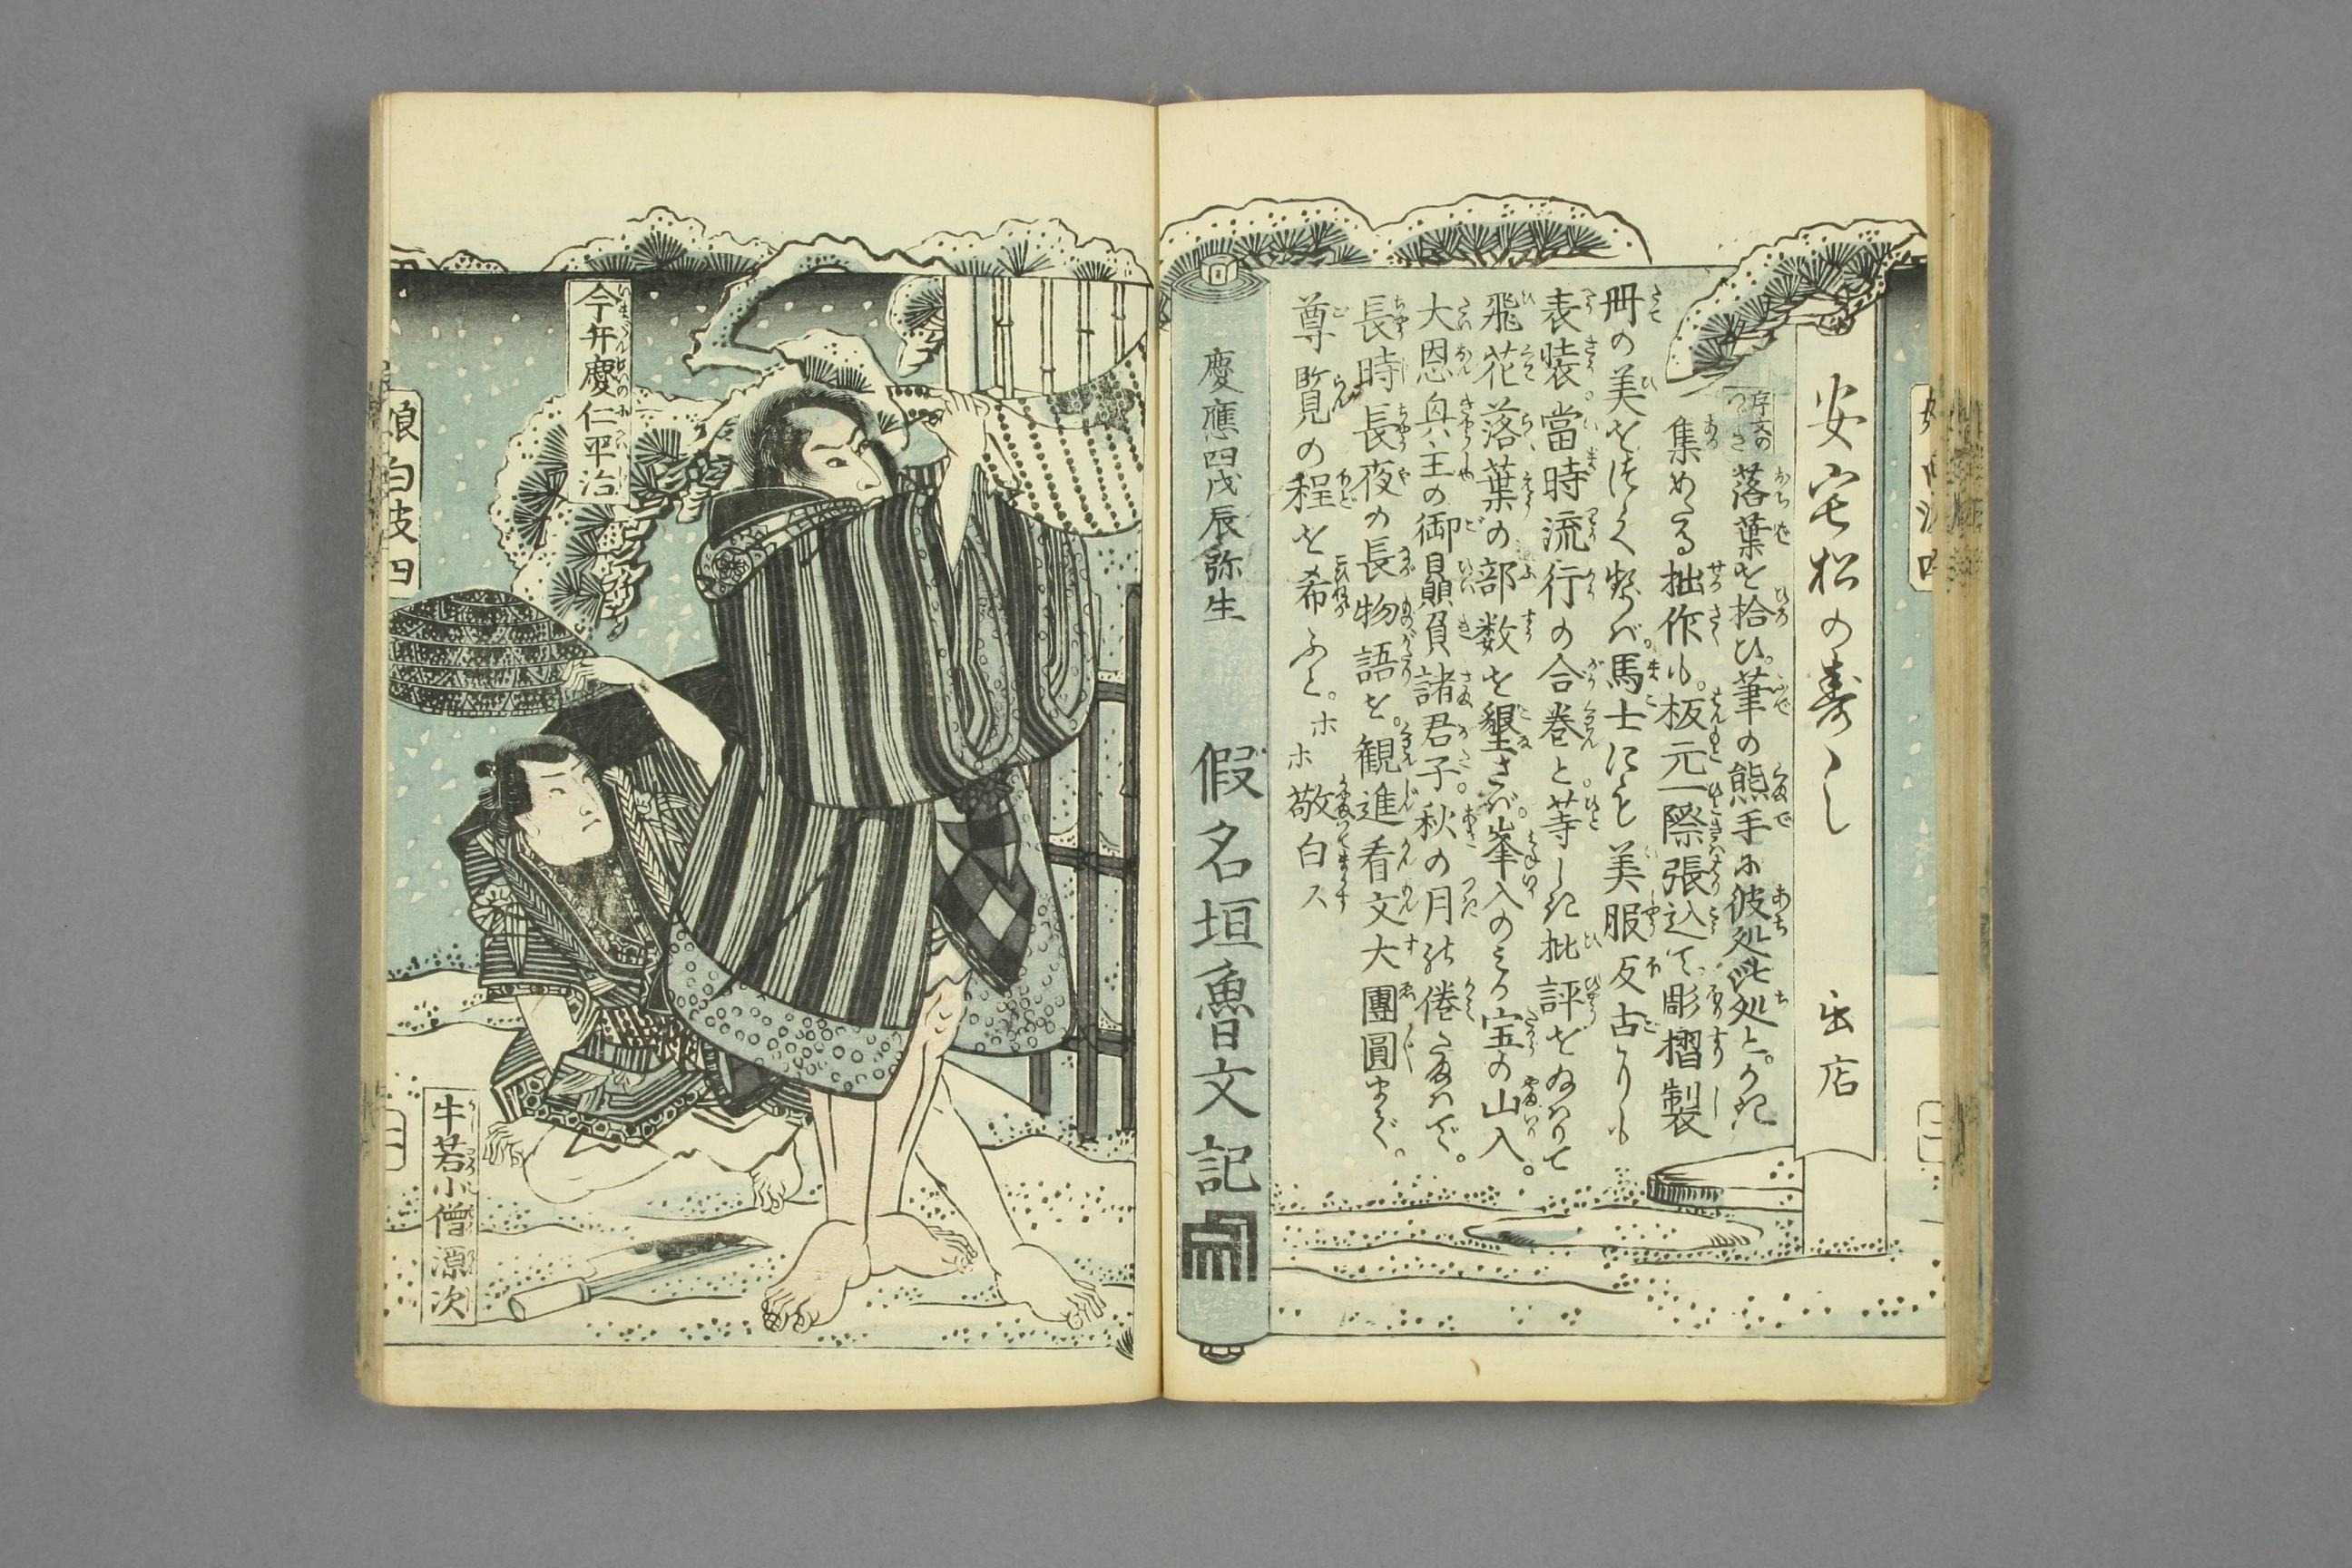 安宅松の壽し 出店
序文の
つゞき
落葉を拾ひ。筆の熊手に彼処此処と。かき
集めたる拙作も。板元一際張込て。彫摺製
冊の美をつくせば。馬士にも美服反古よりも
表装。當時流行の合巻と。等しき批評をゐはひて
飛花落葉の部数を墾さば。峯入のミる宝の山入。
大恩具主の御贔負諸君子。秋の月能倦たまはで。
長時長夜の長物語を。観進看文大團圓まで。
尊覧の程を希ふ而。ホ
ホ敬白ス
慶應四戊辰弥生
假名垣魯文記
今弁慶仁平治
牛若小僧源次
娘白波四